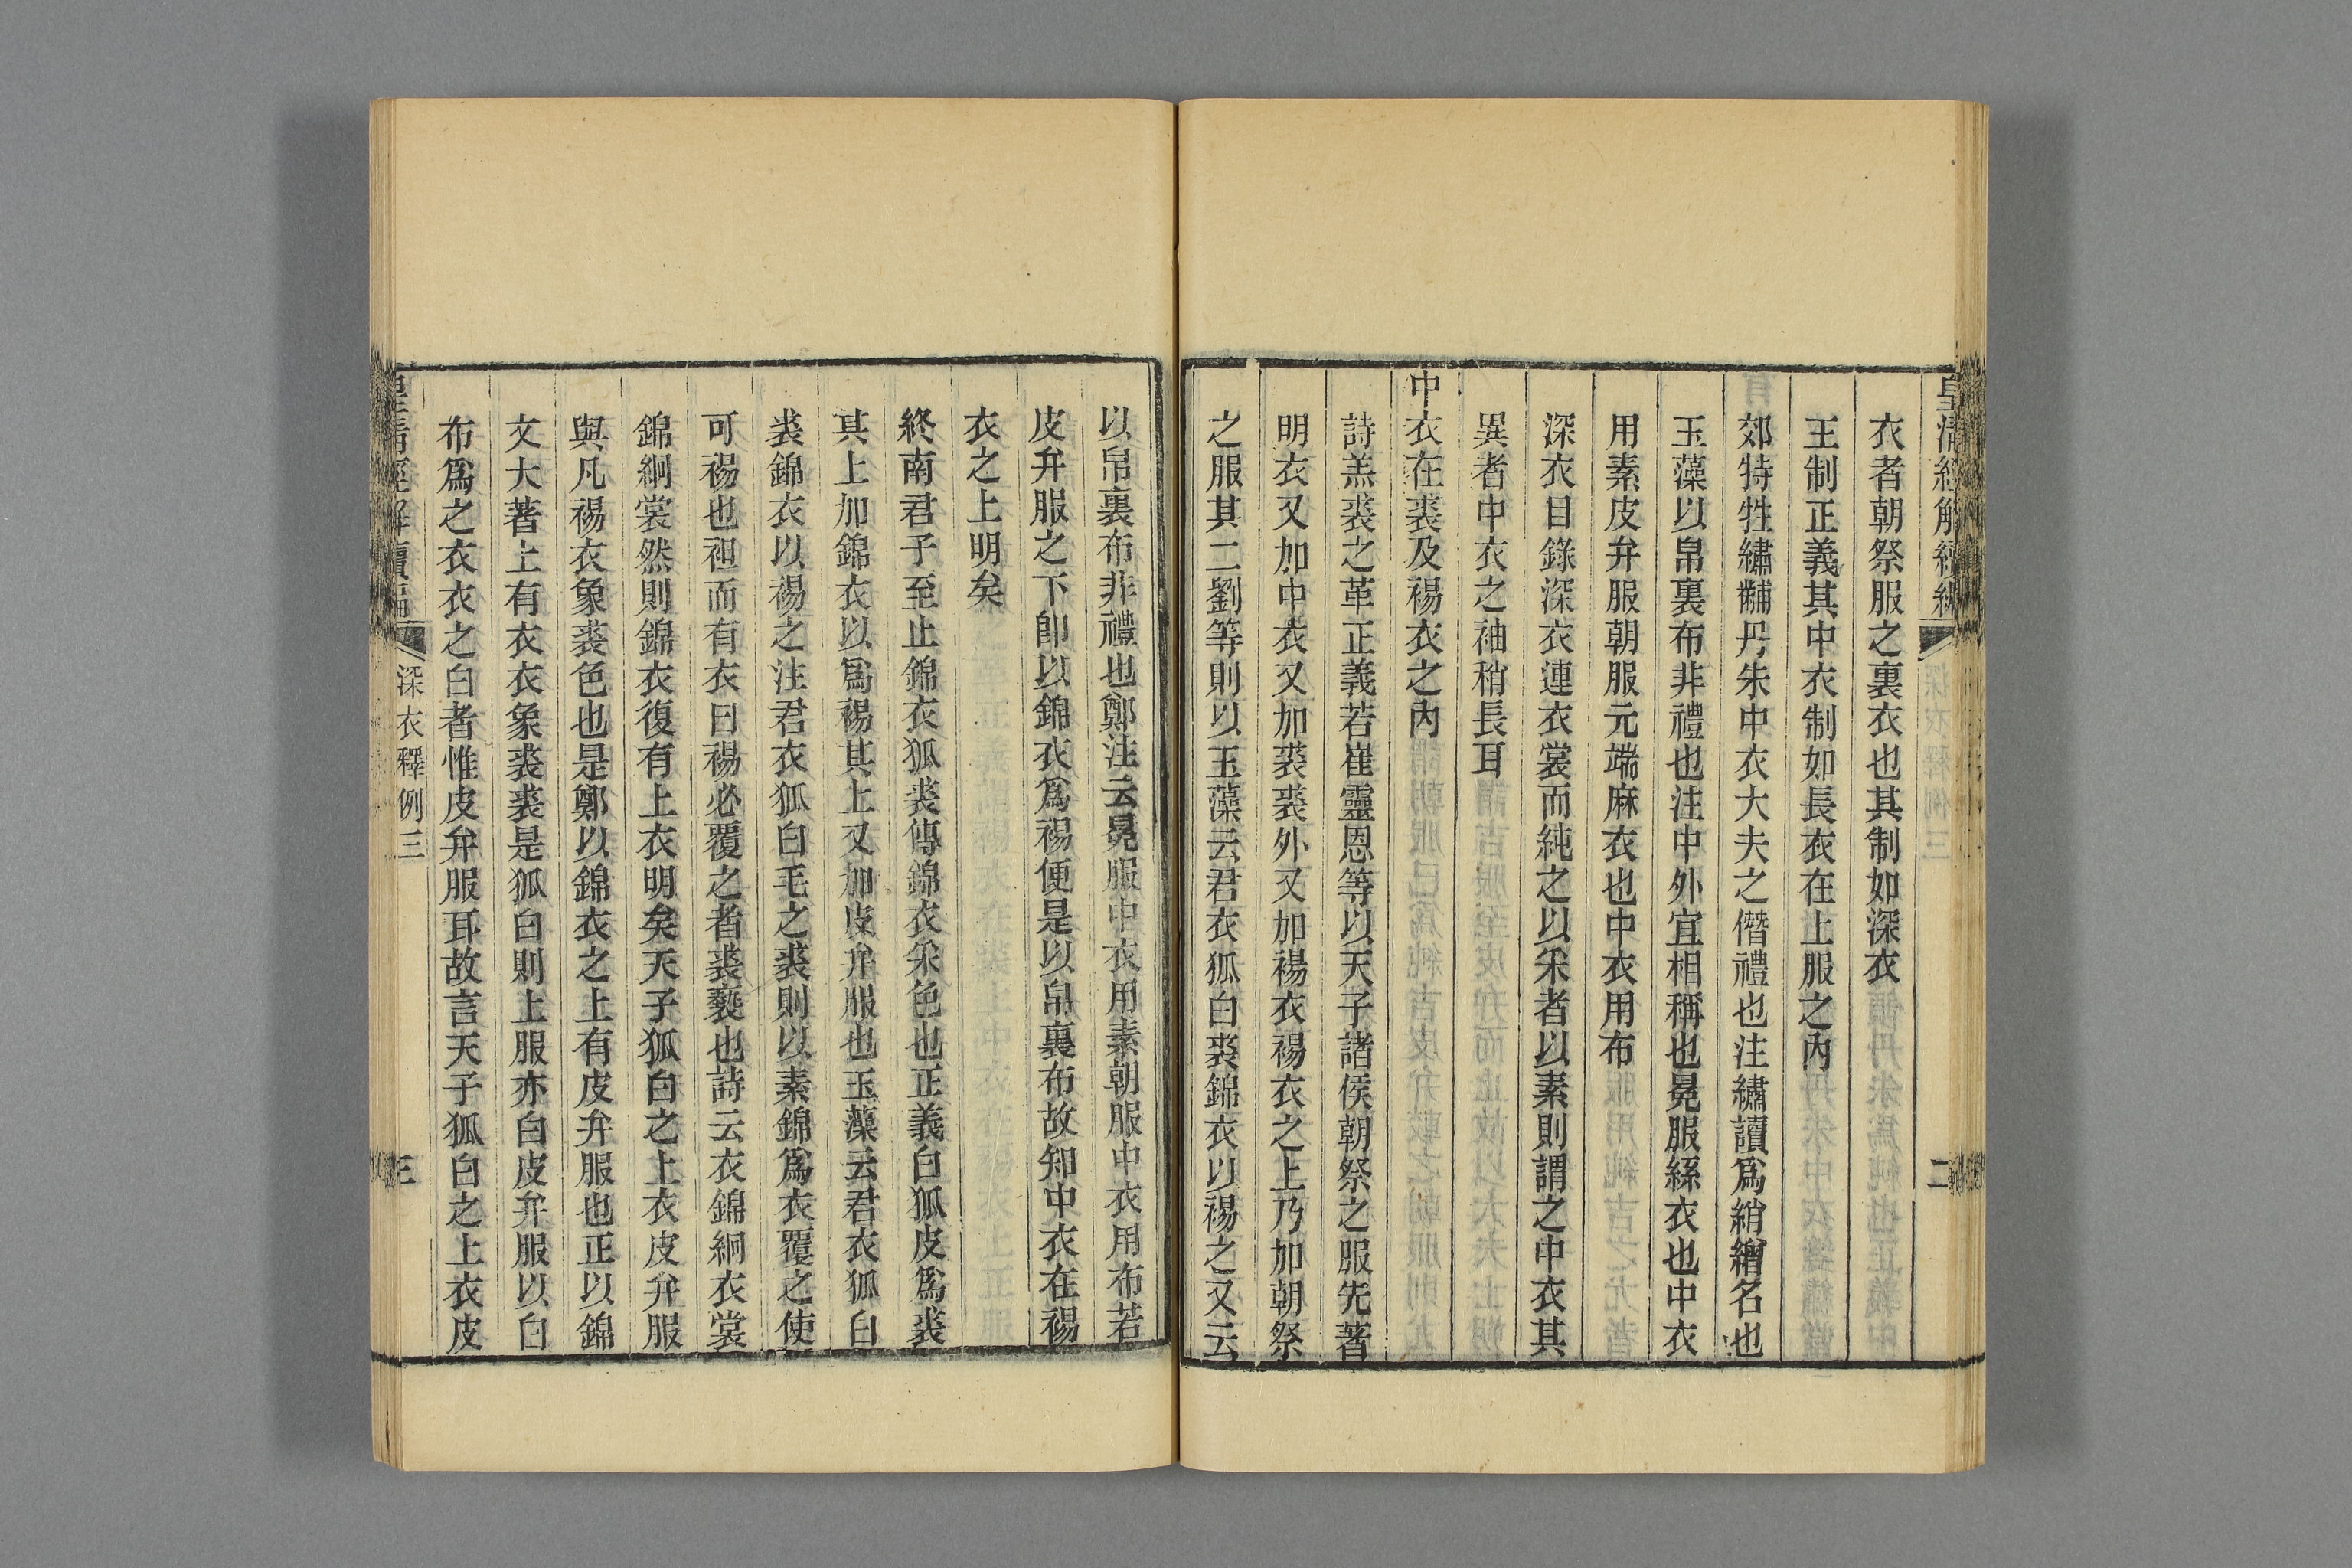 皇清經解續編
二
衣者朝祭服之裏衣也其制如深衣
王制正義其中衣制如長衣在上服之內
郊特牲繡黼丹朱中衣大夫之僭禮也注繡讀爲綃繒名也
玉藻以帛裏布非禮也注中外宜相稱也冕服絲衣也中衣
用素皮弁服朝服元端麻衣也中衣用布
深衣目錄深衣連衣裳而純之以采者以素則謂之中衣其
異者中衣之袖稍長耳
中衣在裘及裼衣之內
詩羔裘之革正義若崔靈恩等以天子諸侯朝祭之服先著
明衣又加中衣又加裘裘外又加裼衣裼衣之上乃加朝祭
之服其二劉等則以玉藻云君衣狐白裘錦衣以裼之又云
以帛裏布非禮也鄭注云冕服中衣用素朝服中衣用布若
皮弁服之下卽以錦衣爲裼便是以帛裏布故知中衣在裼
衣之上明矣
終南君子至止錦衣狐裘傳錦衣采色也正義白狐皮爲裘
其上加錦衣以爲裼其上又加皮弁服也玉藻云君衣狐白
裘錦衣以裼之注君衣狐白毛之裘則以素錦爲衣覆之使
可裼也袒而有衣曰裼必覆之者裘褻也詩云衣錦絅衣裳
錦絅裳然則錦衣復有上衣明矣天子狐白之上衣皮弁服
與凡裼衣象裘色也是鄭以錦衣之上有皮弁服也正以錦
文大著上有衣衣象裘裘是狐白則上服亦白皮弁服以白
布爲之衣衣之白者惟皮弁服耳故言天子狐白之上衣皮
皇清經解續編
深衣釋例三
三